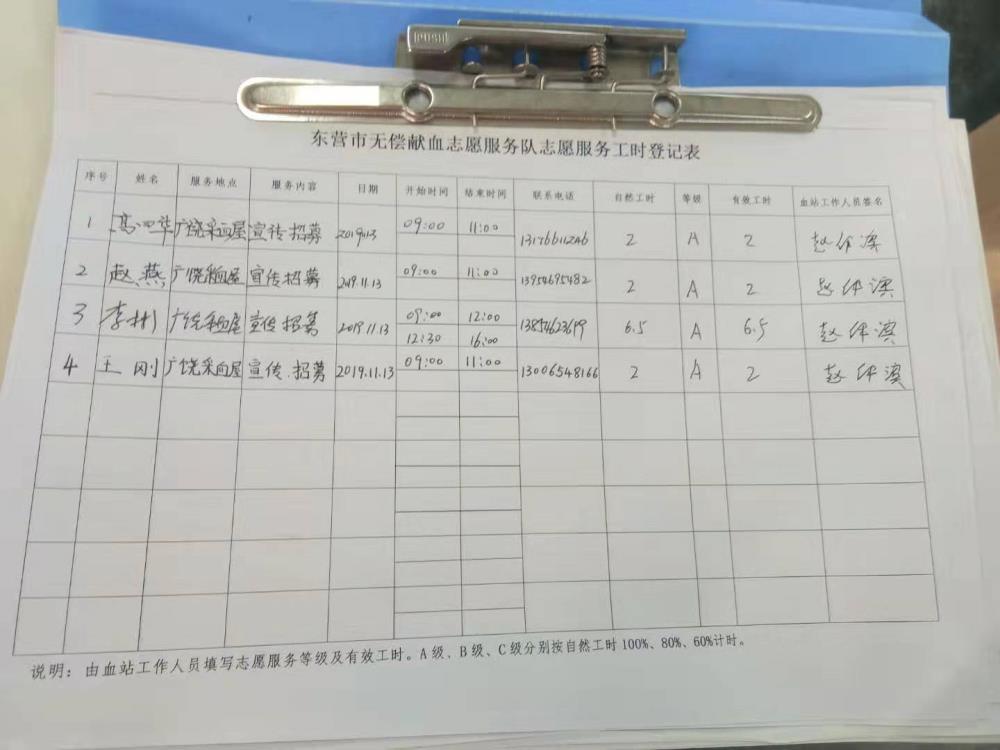 PUSH
东营市无偿献血志愿服务队志愿服务工时登记表
序号 姓名 服务地点 服务内容 日期 开始时间 结束时间 联系电话 自然工时 等级 有效工时 血站工作人员签名
1 高 华 广饶采血屋 宣传招募 09:00 11:00 2 A 2 赵
2 赵燕 广饶采血屋 宣传招募 2019.11.13 09:00 11:00 13954695482 2 A 2 赵
3 李彬 广饶采血屋 宣传招募 2019.11.13 09:00 12:00 6.5 A 6.5 赵
12:30 16:00
4 王刚 广饶采血屋 宣传.招募 2019.11.13 09:00 11:00 13006548166 2 A 2 赵
说明：由血站工作人员填写志愿服务等级及有效工时。A级、B级、C级分别按自然工时100%、80%、60%计时。